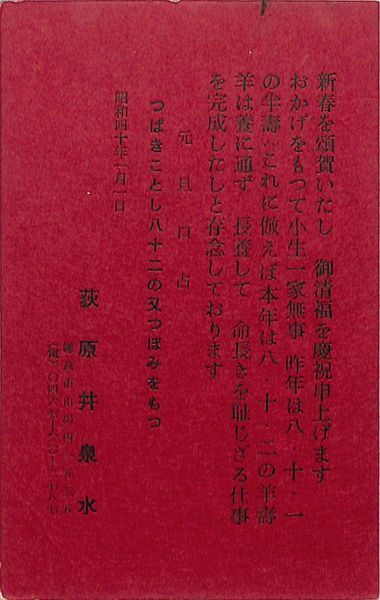 新春を頌賀いたし 御清福を慶祝申上げます
おかげをもつて小生一家無事 昨年は八・十・一
の半壽、これに倣えば本年は八・十・二の羊壽
羊は養に通ず 長養して 命長きを耻じざる仕事
を完成したしと存念しております
元旦口占
つばきことし八十二の又つぼみをもつ
昭和四十年一月一日
荻原井泉水